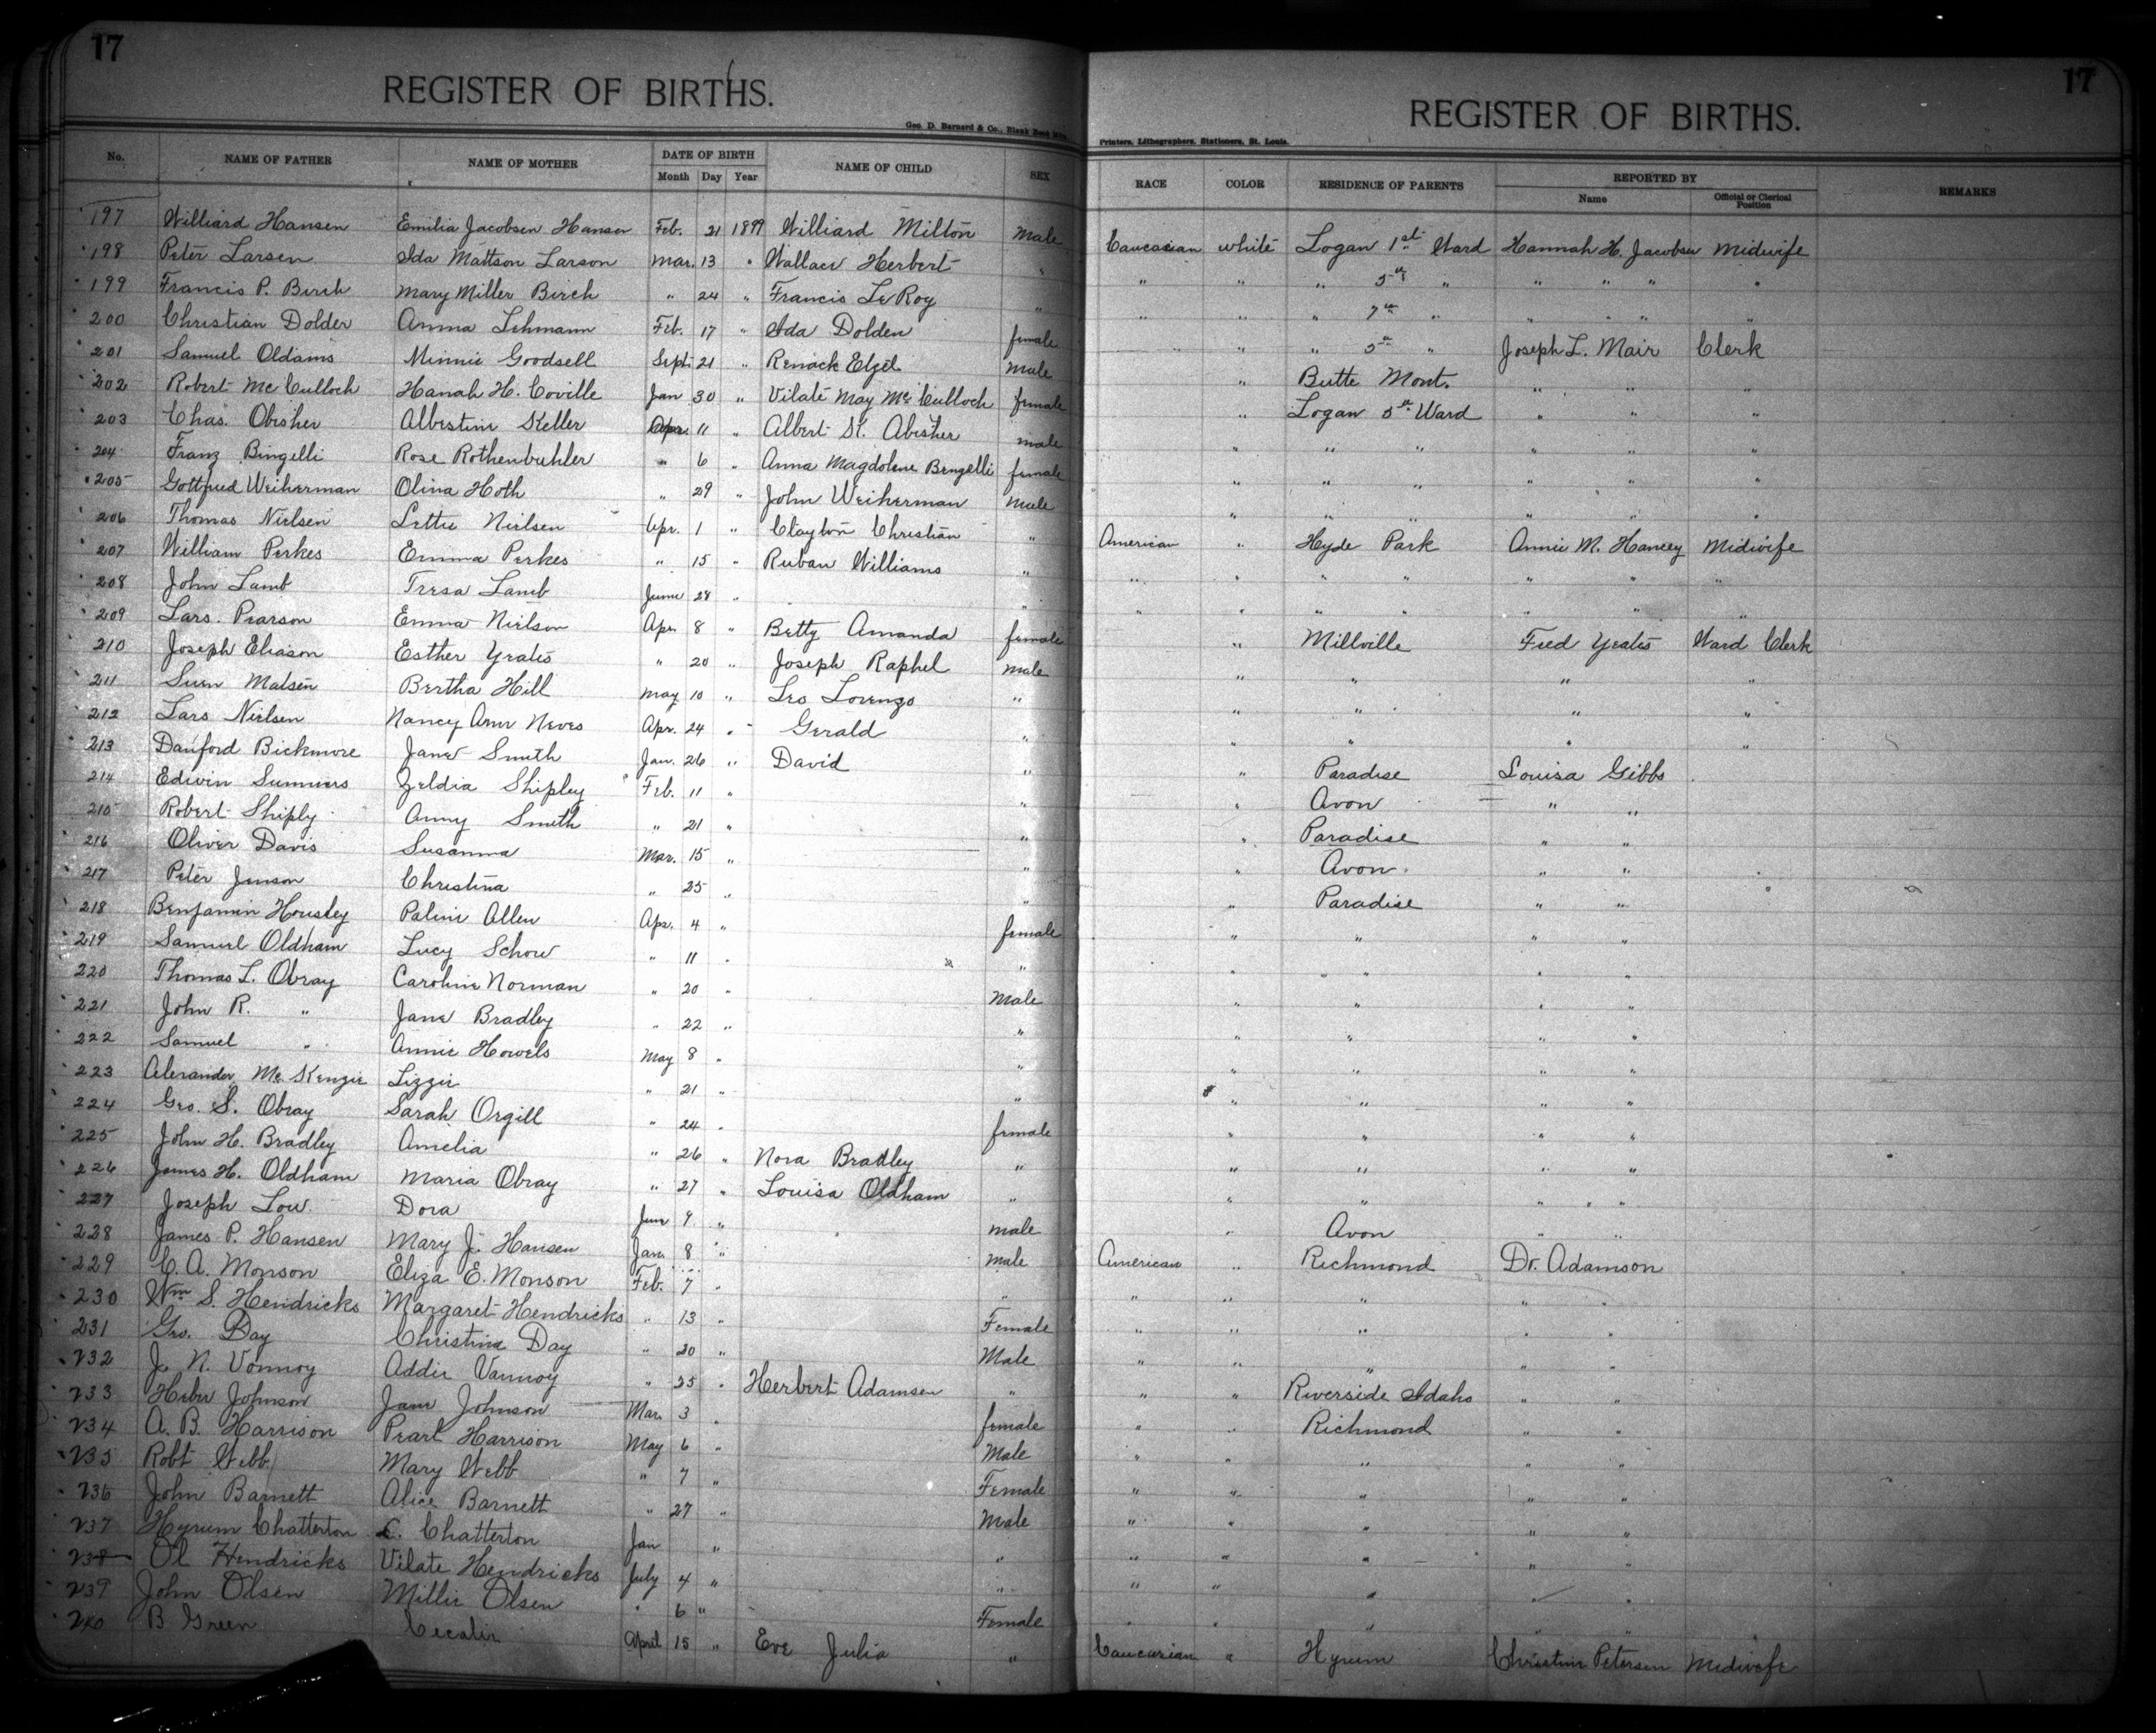 17
REGISTER OF BIRTHS.
Geo. D. Barnard & Co., Blank Book
No. NAME OF FATHER NAME OF MOTHER DATE OF BIRTH Month Day Year NAME OF CHILD SEX
17
REGISTER OF BIRTHS.
Printers, Lithographers, Stationers, St. Louis.
RACE COLOR RESIDENCE OF PARENTS REPORTED BY Name Official or Clerical Position REMARKS
197 Williard Hansen Emilia Jacobsen Hansen Feb. 21 1899 Williard Milton Male Caucasian white Logan 1st Ward Hannah H. Jacobsen Midwife
198 Peter Larsen Ida Mattson Larson Mar. 13 " Wallace Herbert " " " " 5th " " " " "
199 Francis P. Birch Mary Miller Birch " 24 " Francis LeRoy " " " " 7th " " " " "
200 Christian Dolder Anna Lehmann Feb. 17 " Ida Dolden female " " 5th " Joseph L. Mair Clerk
201 Samuel Oldams Minnie Goodsell Sept 21 " Renack Elzel male " Butte Mont. " " "
202 Robert McCulloch Hanah H. Coville Jan 30 " Vilate May McCulloch female " Logan 5th Ward " " "
203 Chas. Obisher Albestine Keller Apr. 11 " Albert K. Abisher male " " " " " "
204 Franz Bingelli Rose Rothenbuhler " 6 " Anna Magdolene Bengelli female " " " " " "
205 Gottfried Weiherman Olina Hoth " 29 " John Weiherman Male " " " " " "
206 Thomas Nielsen Lettie Nielsen Apr. 1 " Clayton Christian " American " Hyde Park Annie M. Hancey Midwife
207 William Perkes Emma Perkes " 15 " Ruban Williams " " " " " " " "
208 John Lamb Tresa Lamb June 28 " " " " " " " " "
209 Lars. Pearson Emma Nielson Apr. 8 " Betty Amanda female " Millville Fred Yeates Ward Clerk
210 Joseph Eliason Esther Yeates " 20 " Joseph Raphel male " " " "
211 Suen Matsen Bertha Hill May 10 " Leo Lorenzo " " " " "
212 Lars Nielsen Nancy Ann Neves Apr. 24 " Gerald " " " " "
213 Danford Bickmore Jane Smith Jan. 26 " David " " Paradise Louisa Gibbs
214 Edwin Summers Zeldia Shipley Feb. 11 " " " Avon " "
215 Robert Shiply Anny Smith " 21 " " " Paradise " "
216 Oliver Davis Susanna Mar. 15 " " " Avon " "
217 Peter Jenson Christina " 25 " " " Paradise " "
218 Benjamin Housley Paline Allen Apr. 4 " female " " " "
219 Samuel Oldham Lucy Schow " 11 " " " " " "
220 Thomas L. Obray Caroline Norman " 20 " Male " " " "
221 John R. " Jane Bradley " 22 " " " " " "
222 Samuel " Annie Howels May 8 " " " " " "
223 Alexander McKenzie Lizzie " 21 " " " " " "
224 Geo. S. Obray Sarah Orgill " 24 " female " " " "
225 John H. Bradley Amelia " 26 " Nora Bradley " " " " "
226 James H. Oldham Maria Obray " 27 " Louisa Oldham " " " " "
227 Joseph Low Dora June 9 " male " Avon " "
228 James P. Hansen Mary J. Hansen Jan. 8 " male American " Richmond Dr. Adamson
229 C. A. Monson Eliza E. Monson Feb. 7 " " " " " " "
230 Wm S. Hendricks Margaret Hendricks " 13 " Female " " " " "
231 Geo. Day Christina Day " 20 " Male " " " " "
232 J. N. Vonnoy Addie Vannoy " 25 " Herbert Adamsen " " " Riverside Idaho " "
233 Heber Johnson Jane Johnson Mar. 3 " female " " Richmond " "
234 A. B. Harrison Pearl Harrison May 6 " Male " " " " "
235 Robt Webb Mary Webb " 7 " Female " " " " "
236 John Barnett Alice Barnett " 27 " Male " " " " "
237 Hyrum Chatterton L. Chatterton Jan " " " " " " "
238 Ol Hendricks Vilate Hendricks July 4 " " " " " " "
239 John Olsen Millie Olsen " 6 " Female " " " " "
240 B Green Cecalie April 15 " Eve Julia " Caucasian " Hyrum Christine Petersen Midwife